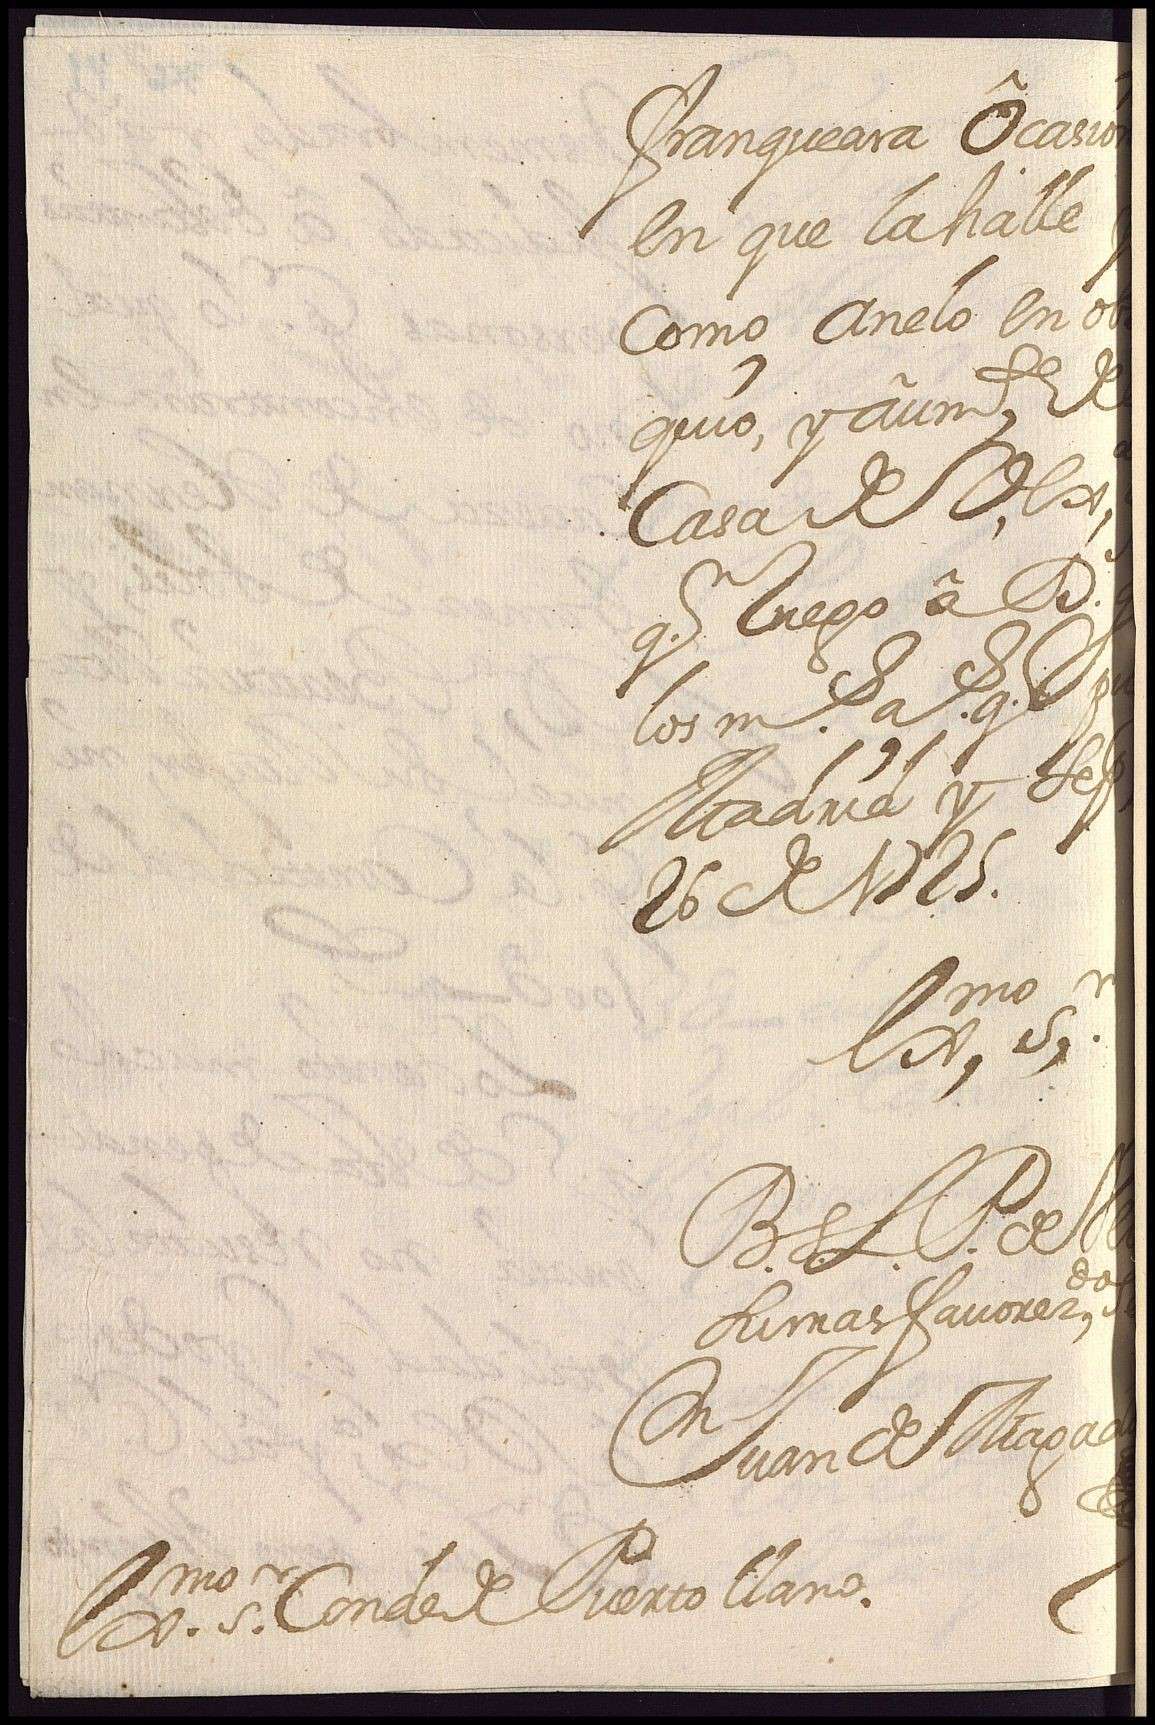 franqueara ôcasion
en que la halle
como anelo en ob
quio, y âum.to de
Casa de V, Ex,a
q.n ruego â D.
los m.s a.s q.
Madrid y Sep
26 de 1725.
Ex,mo S,r.
B. L. P. de
su mas favorez,do
Juan de Magad
Ex.mo S.r Conde de Puerto llano.